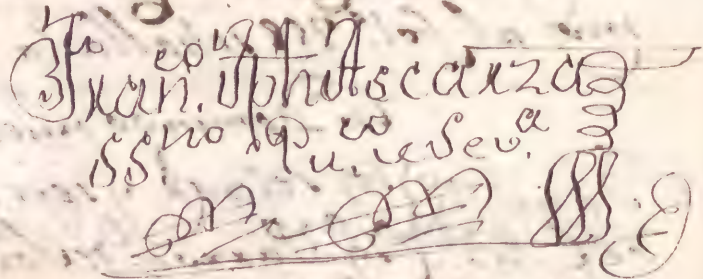 Fran.co Jph Ascarza
SS.no Pu.co de Sev.a